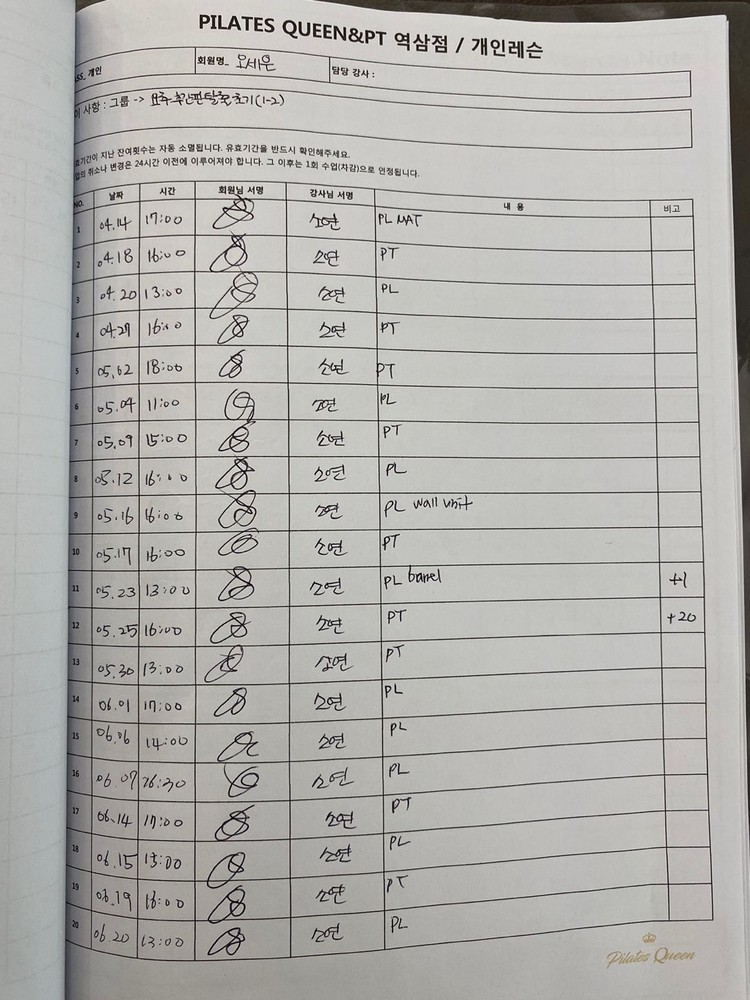 PILATES QUEEN&PT 역삼점 / 개인레슨
SS. 개인 회원명. 오세은 담당 강사 :
이 사항 : 그룹 -> 요추 추간판탈출 초기(1-2)
효기간이 지난 잔여횟수는 자동 소멸됩니다. 유효기간을 반드시 확인해주세요.
업의 취소나 변경은 24시간 이전에 이루어져야 합니다. 그 이후는 1회 수업(차감)으로 인정됩니다.
NO. 날짜 시간 회원님 서명 강사님 서명 내 용 비고
1 04.14 17:00 소연 PL MAT
2 04.18 16:00 소연 PT
3 04.20 13:00 소연 PL
4 04.27 16:00 소연 PT
5 05.02 18:00 소연 PT
6 05.04 11:00 소연 PL
7 05.09 15:00 소연 PT
8 05.12 16:00 소연 PL
9 05.16 16:00 소연 PL wall unit
10 05.17 16:00 소연 PT
11 05.23 13:00 소연 PL barrel +1
12 05.25 16:00 소연 PT +20
13 05.30 13:00 소연 PT
14 06.01 17:00 소연 PL
15 06.06 14:00 소연 PL
16 06.07 16:30 소연 PL
17 06.14 17:00 소연 PT
18 06.15 13:00 소연 PL
19 06.19 16:00 소연 PT
20 06.20 13:00 소연 PL
Pilates Queen